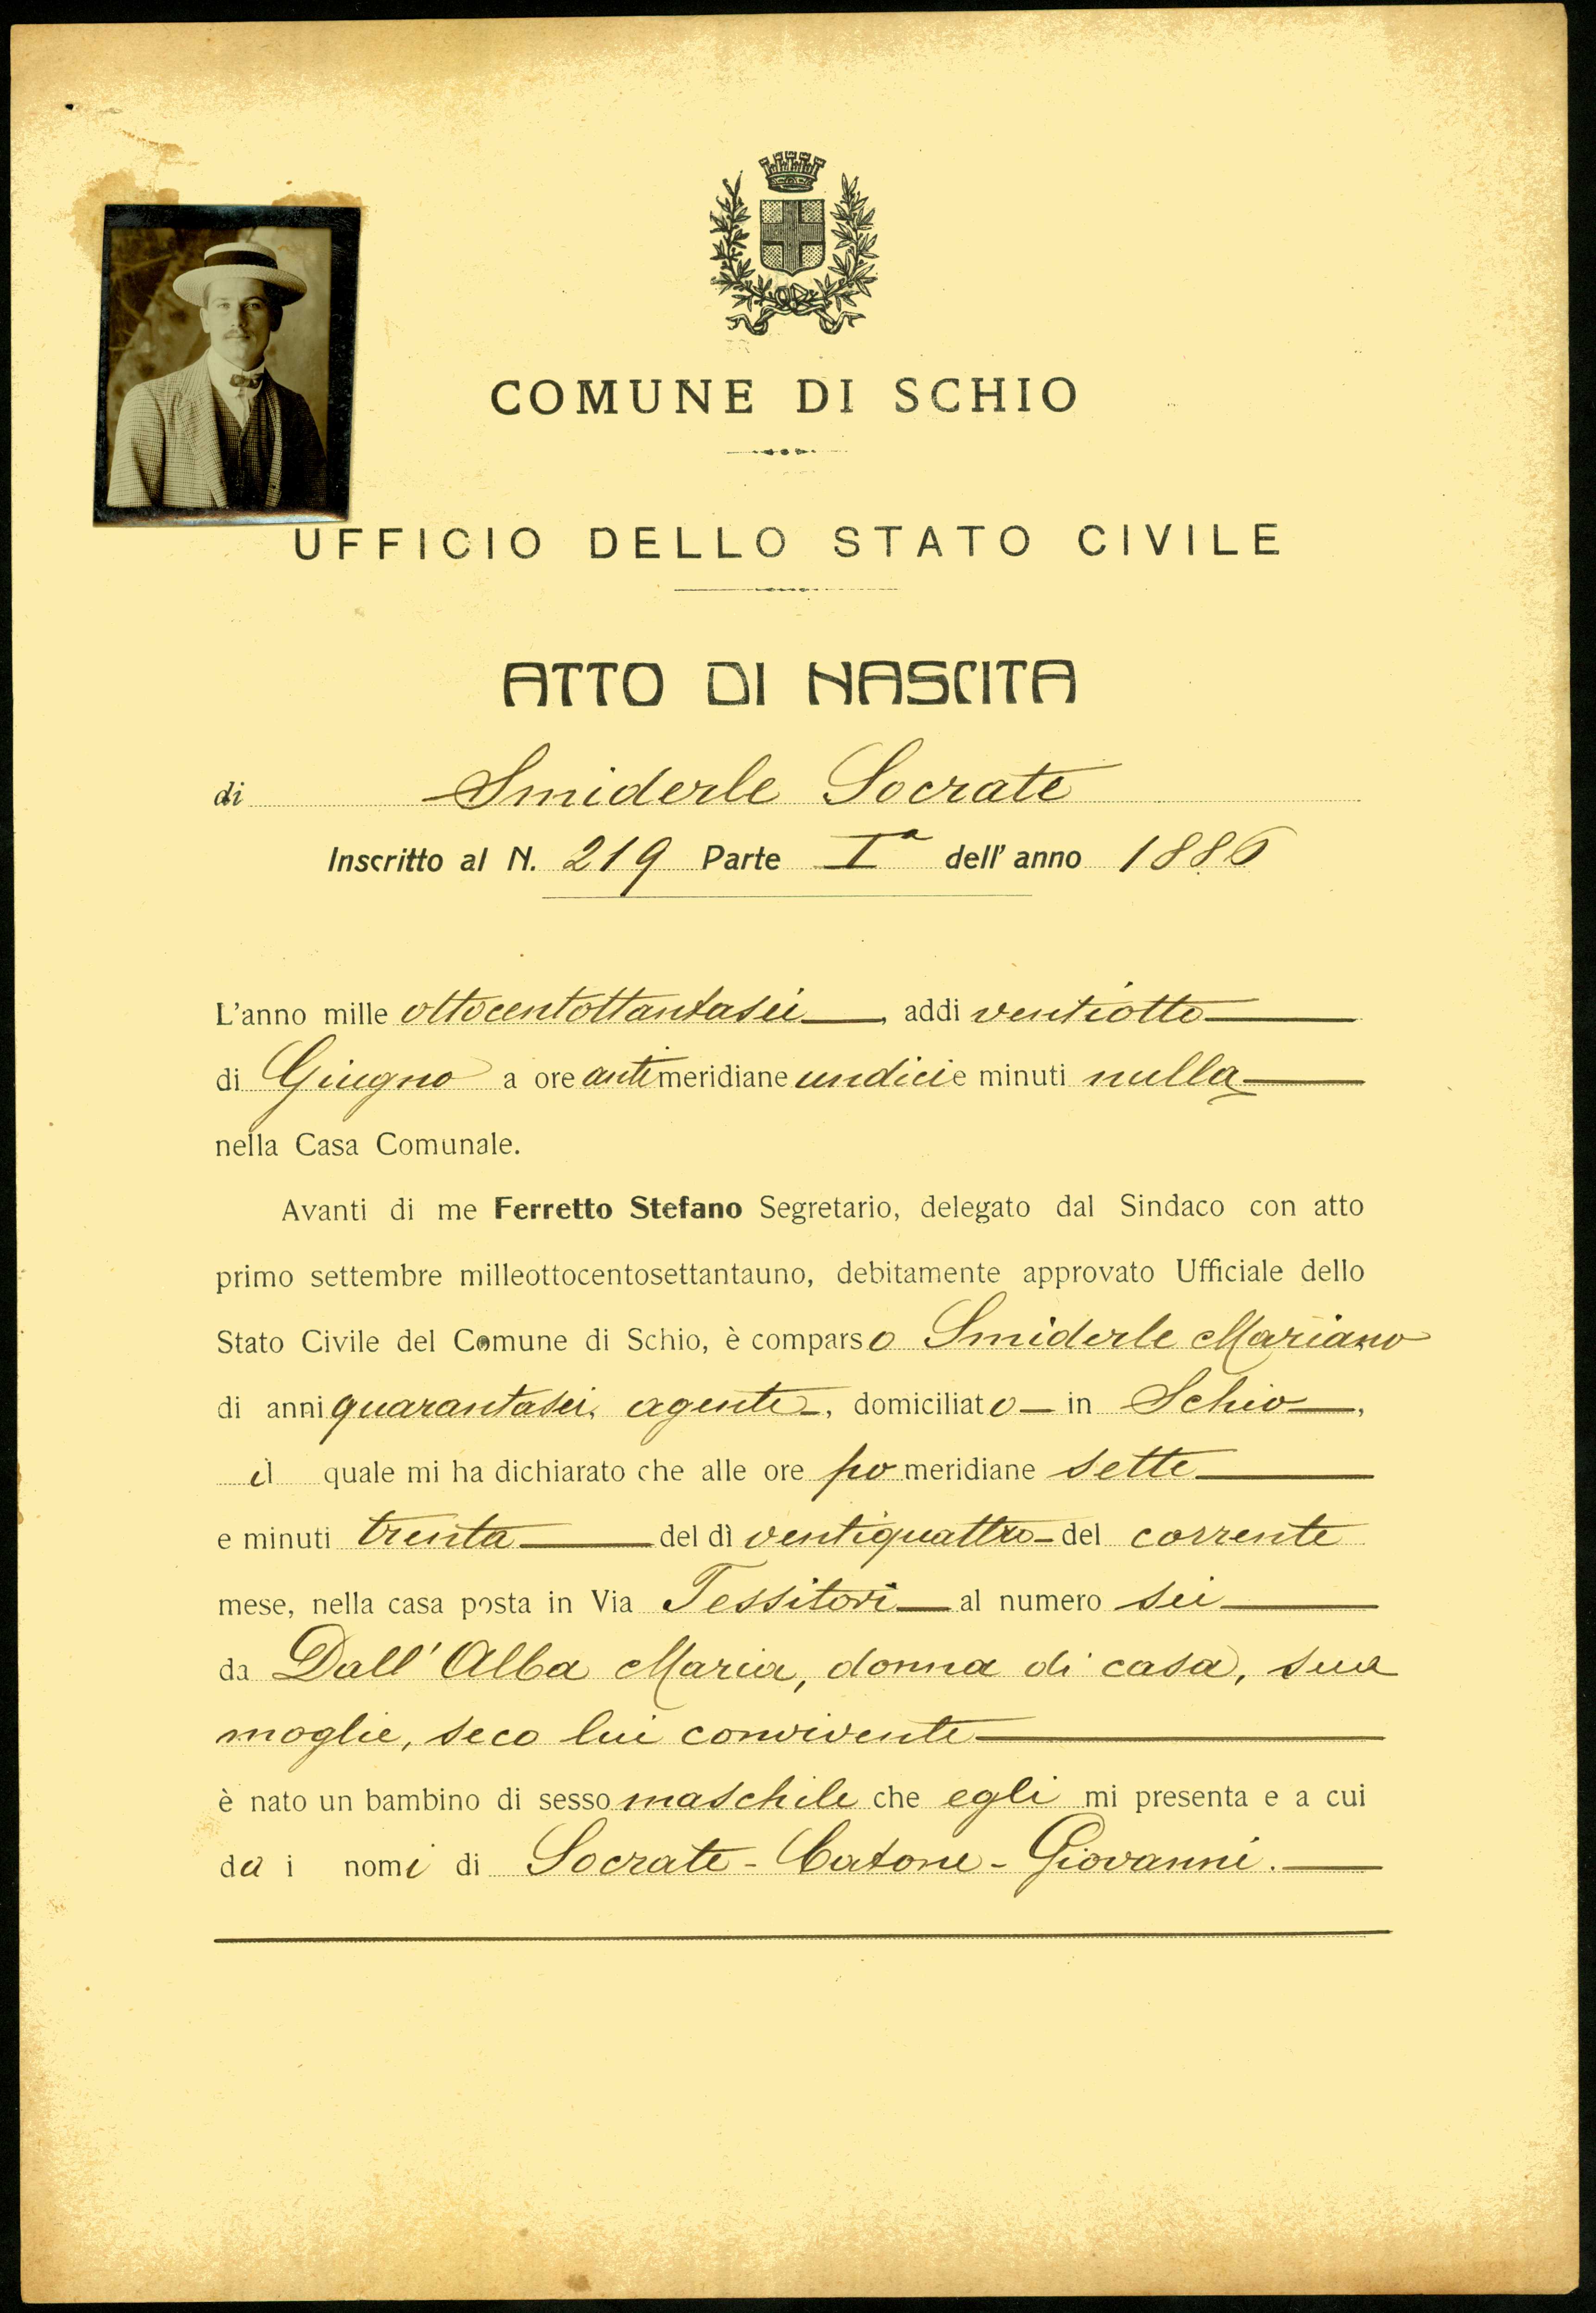 COMUNE DI SCHIO
UFFICIO DELLO STATO CIVILE
ATTO DI NASCITA
di Smiderle Socrate
Inscritto al N. 219 Parte Iª dell' anno 1886
L'anno mille ottocentottantasei, addi ventiotto
di Giugno a ore antimeridiane undici e minuti nulla
nella Casa Comunale.
Avanti di me Ferretto Stefano Segretario, delegato dal Sindaco con atto
primo settembre milleottocentosettantauno, debitamente approvato Ufficiale dello
Stato Civile del Comune di Schio, è comparso Smiderle Mariano
di anni quarantasei, agente, domiciliato in Schio,
il quale mi ha dichiarato che alle ore pomeridiane sette
e minuti trenta del dì ventiquattro del corrente
mese, nella casa posta in Via Tessitori al numero sei
da Dall' Alba Maria, donna di casa, sua
moglie, seco lui convivente
è nato un bambino di sesso maschile che egli mi presenta e a cui
da i nomi di Socrate - Catone - Giovanni.